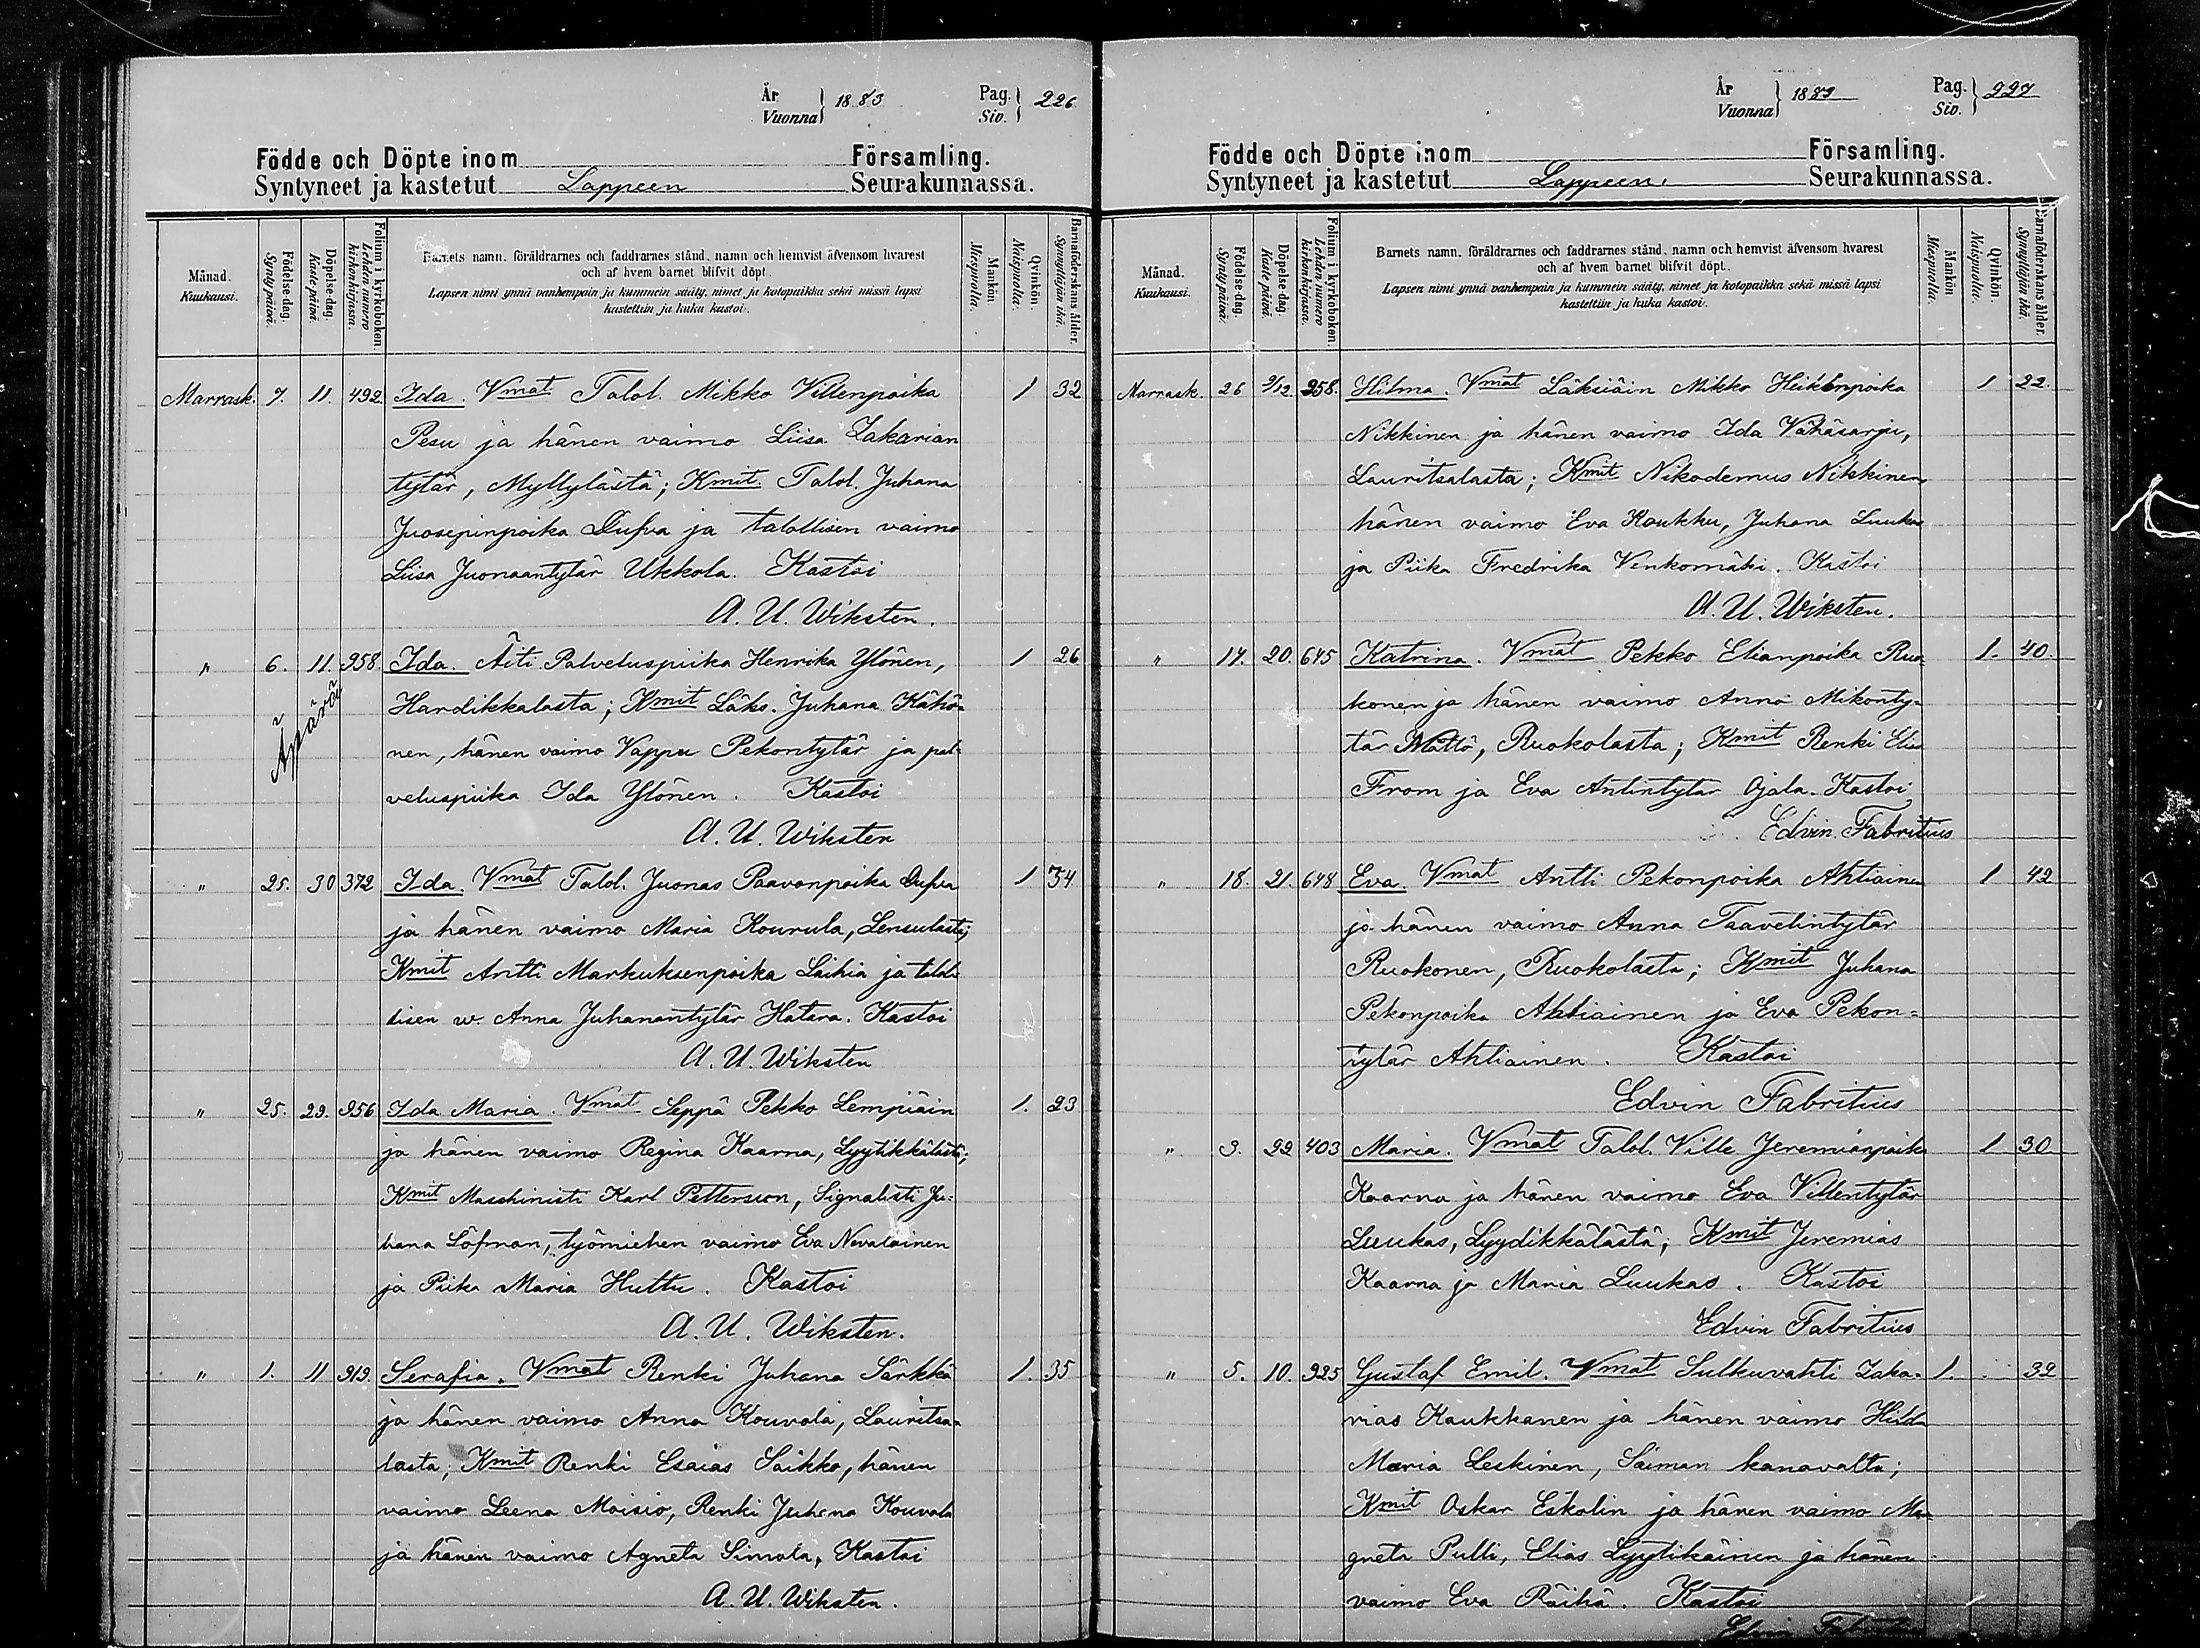 År Vuonna 1883 Pag. Siv. 226
Födde och Döpte inom Församling.
Syntyneet ja kastetut Lappeen Seurakunnassa.
Månad. Kuukausi.
Födelse-dag. Synty päivä.
Döpelse-dag. Kaste päivä.
Folium i kyrkoboken. Lehden numero kirkonkirjassa.
Barnets namn, föräldrarnes och faddrarnes stånd, namn och hemvist äfvensom hvarest
och af hvem barnet blifvit döpt.
Lapsen nimi ynnä vanhempain ja kummein sääty, nimet ja kotopaikka sekä missä lapsi
kastettiin ja kuka kastoi.
Mankön Miespuolia.
Qvinkön. Naispuolia.
Barnaföderskans ålder. Synnyttäjän ikä.
Marrask. 7. 11. 492. Ida. Vmat Talol. Mikko Villenpoika 1 32
Pesu ja hänen vaimo Liisa Zakarian
tytär, Myllylästä; Kmit. Talol. Juhana
Juosepinpoika Dufva ja talollisen vaimo
Liisa Juonaantytär Ukkola. Kastoi
A. U. Wiksten.
" 6. 11. 958. Ida. Äiti Palveluspiika Henrika Ylönen, 1 26
Äpärä
Hardikkalasta; Kmit Läks. Juhana Kähö-
nen, hänen vaimo Vappu Pekontytär ja pal-
veluspiika Ida Ylönen. Kastoi
A. U. Wiksten
" 25. 30 372 Ida. Vmat Talol. Juonas Paavonpoika Dufva 1 34
ja hänen vaimo Maria Kourula, Lensulasta;
Kmit Antti Markuksenpoika Laihia ja talol-
lisen w. Anna Juhanantytär Hatara. Kastoi
A. U. Wiksten
" 25. 29. 956 Ida Maria. Vmat Seppä Pekko Lempiäin 1. 23
ja hänen vaimo Regina Kaarna, Lyytikkälästä;
Kmit Maschinisti Karl Pettersson, Signalisti Ju-
hana Löfman, työmiehen vaimo Eva Nevalainen
ja Piika Maria Huttu. Kastoi
A. U. Wiksten.
" 1. 11 919. Serafia. Vmat Renki Juhana Särkkä 1. 35
ja hänen vaimo Anna Kouvola, Lauritsa-
lasta; Kmit Renki Esaias Saikko, hänen
vaimo Leena Moisio, Renki Juhana Kouvola
ja hänen vaimo Agneta Simola, Kastoi
A. U. Wiksten.
År Vuonna 1883 Pag. Siv. 227
Födde och Döpte inom Församling.
Syntyneet ja kastetut Lappeen. Seurakunnassa.
Månad. Kuukausi.
Födelse-dag. Synty päivä.
Döpelse-dag. Kaste päivä.
Folium i kyrkoboken. Lehden numero kirkonkirjassa.
Barnets namn, föräldrarnes och faddrarnes stånd, namn och hemvist äfvensom hvarest
och af hvem barnet blifvit döpt.
Lapsen nimi ynnä vanhempain ja kummein sääty, nimet ja kotopaikka sekä missä lapsi
kastettiin ja kuka kastoi.
Mankön Miespuolia.
Qvinkön. Naispuolia.
Barnaföderskans ålder. Synnyttäjän ikä.
Marrask. 26 2/12. 958. Hilma. Vmat Läkiäin Mikko Heikinpoika 1 22.
Nikkinen ja hänen vaimo Ida Vähäsarju,
Lauritsalasta; Kmit Nikodemus Nikkinen,
hänen vaimo Eva Koukku, Juhana Luukas
ja Piika Fredrika Venkomäki. Kastoi
A. U. Wiksten.
" 14. 20. 645 Katrina. Vmat Pekko Elianpoika Ruo- 1. 40.
konen ja hänen vaimo Anna Mikonty-
tär Mättö, Ruokolasta; Kmit Renki Elias
From ja Eva Antintytär Ojala. Kastoi
Edvin Fabritius
" 18. 21. 648 Eva. Vmat Antti Pekonpoika Ahtiainen 1 42
ja hänen vaimo Anna Taavetintytär
Ruokonen, Ruokolasta; Kmit Juhana
Pekonpoika Ahtiainen ja Eva Pekon-
tytär Ahtiainen. Kastoi
Edvin Fabritius
" 3. 22 403 Maria. Vmat Talol. Ville Jeremianpoika 1 30
Kaarna ja hänen vaimo Eva Villentytär
Luukas, Lyydikkälästä; Kmit Jeremias
Kaarna ja Maria Luukas. Kastoi
Edvin Fabritius
" 5. 10. 925 Gustaf Emil. Vmat Sulkuvahti Zaka- 1. 32
rias Kaukkanen ja hänen vaimo Hilda
Maria Leskinen, Saiman kanavalta;
Kmit Oskar Eskolin ja hänen vaimo Ma-
gneta Pulli, Elias Lyytikäinen ja hänen
vaimo Eva Räihä. Kastoi
Edvin Fabritius